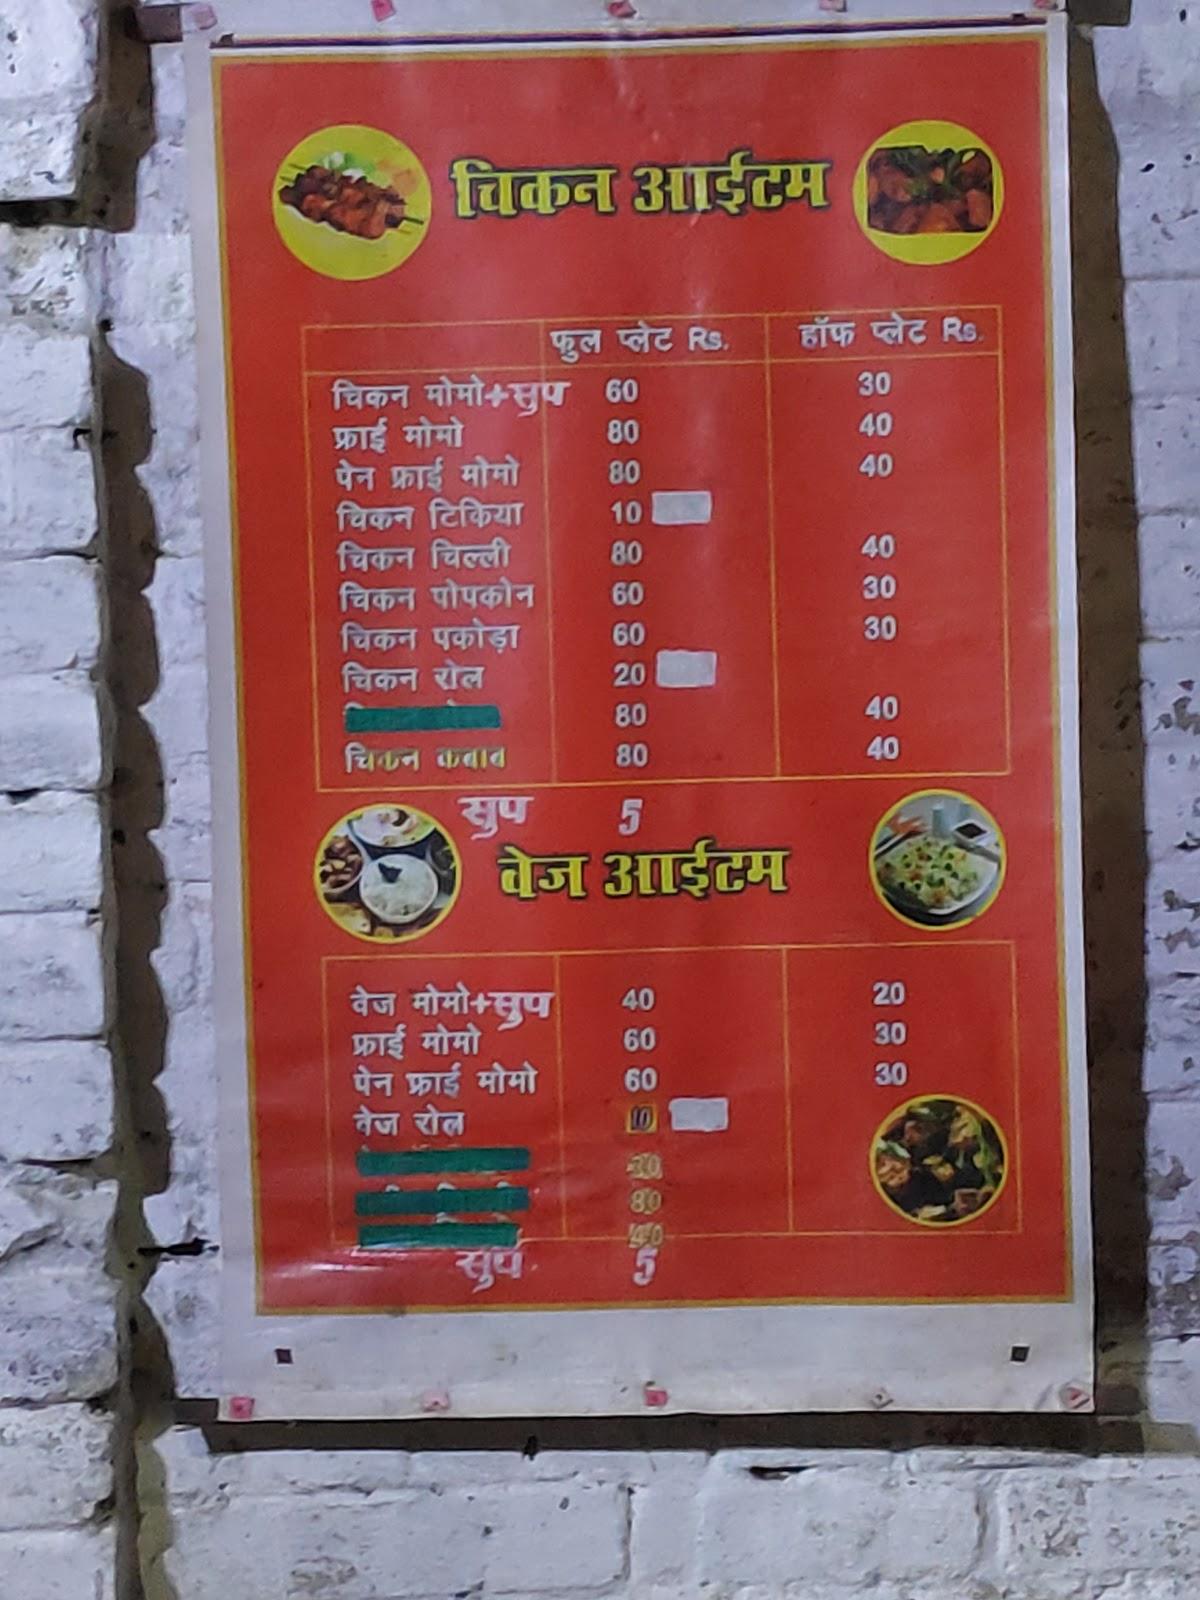 चिकन आईटम
फुल प्लेट Rs. हॉफ प्लेट Rs.
चिकन मोमो+सुप 60 30
फ्राई मोमो 80 40
पेन फ्राई मोमो 80 40
चिकन टिकिया 10
चिकन चिल्ली 80 40
चिकन पोपकोन 60 30
चिकन पकोड़ा 60 30
चिकन रोल 20
80 40
चिकन कबाब 80 40
सुप 5
वेज आईटम
वेज मोमो+सुप 40 20
फ्राई मोमो 60 30
पेन फ्राई मोमो 60 30
वेज रोल 10
80
40
सुप 5